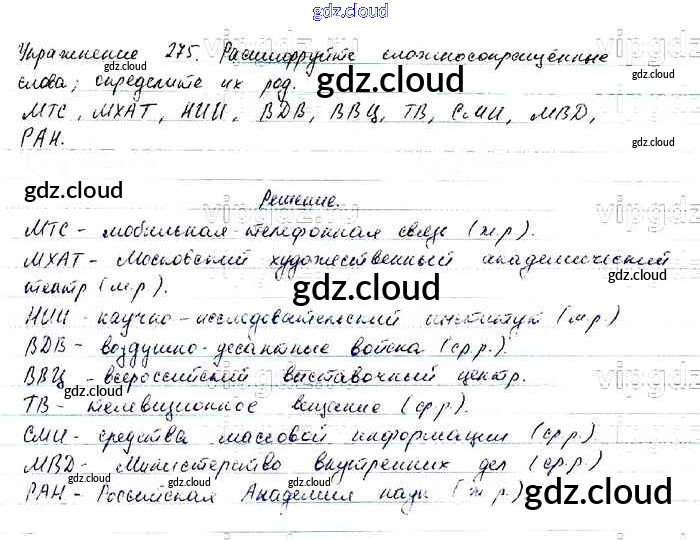 gdz.cloud
Упражнение 275. Расшифруйте сложносокращённые
слова; определите их род.
gdz.cloud
МТС, МХАТ, НИИ, ВДВ, ВВЦ, ТВ, СМИ, МВД,
gdz.cloud
РАН.
gdz.cloud
gdz.cloud
Решение.
vipgdz
МТС - мобильная телефонная связь (ж.р).
МХАТ - Московский художественный академический
театр (м.р).
gdz.cloud
gdz.cloud
НИИ - научно-исследовательский институт (м.р)
ВДВ - воздушно-десантные войска (ср.р.).
gdz.cloud
ВВЦ - всероссийский выставочный центр.
ТВ - телевизионное вещание (ср.р).
gdz.cloud
СМИ - средства массовой информации (ср.р.)
МВД - Министерство внутренних дел (ср.р.)
gdz.cloud
gdz.cloud
РАН - Российская Академия наук (ж.р)
gdz.cloud
gdz.cloud